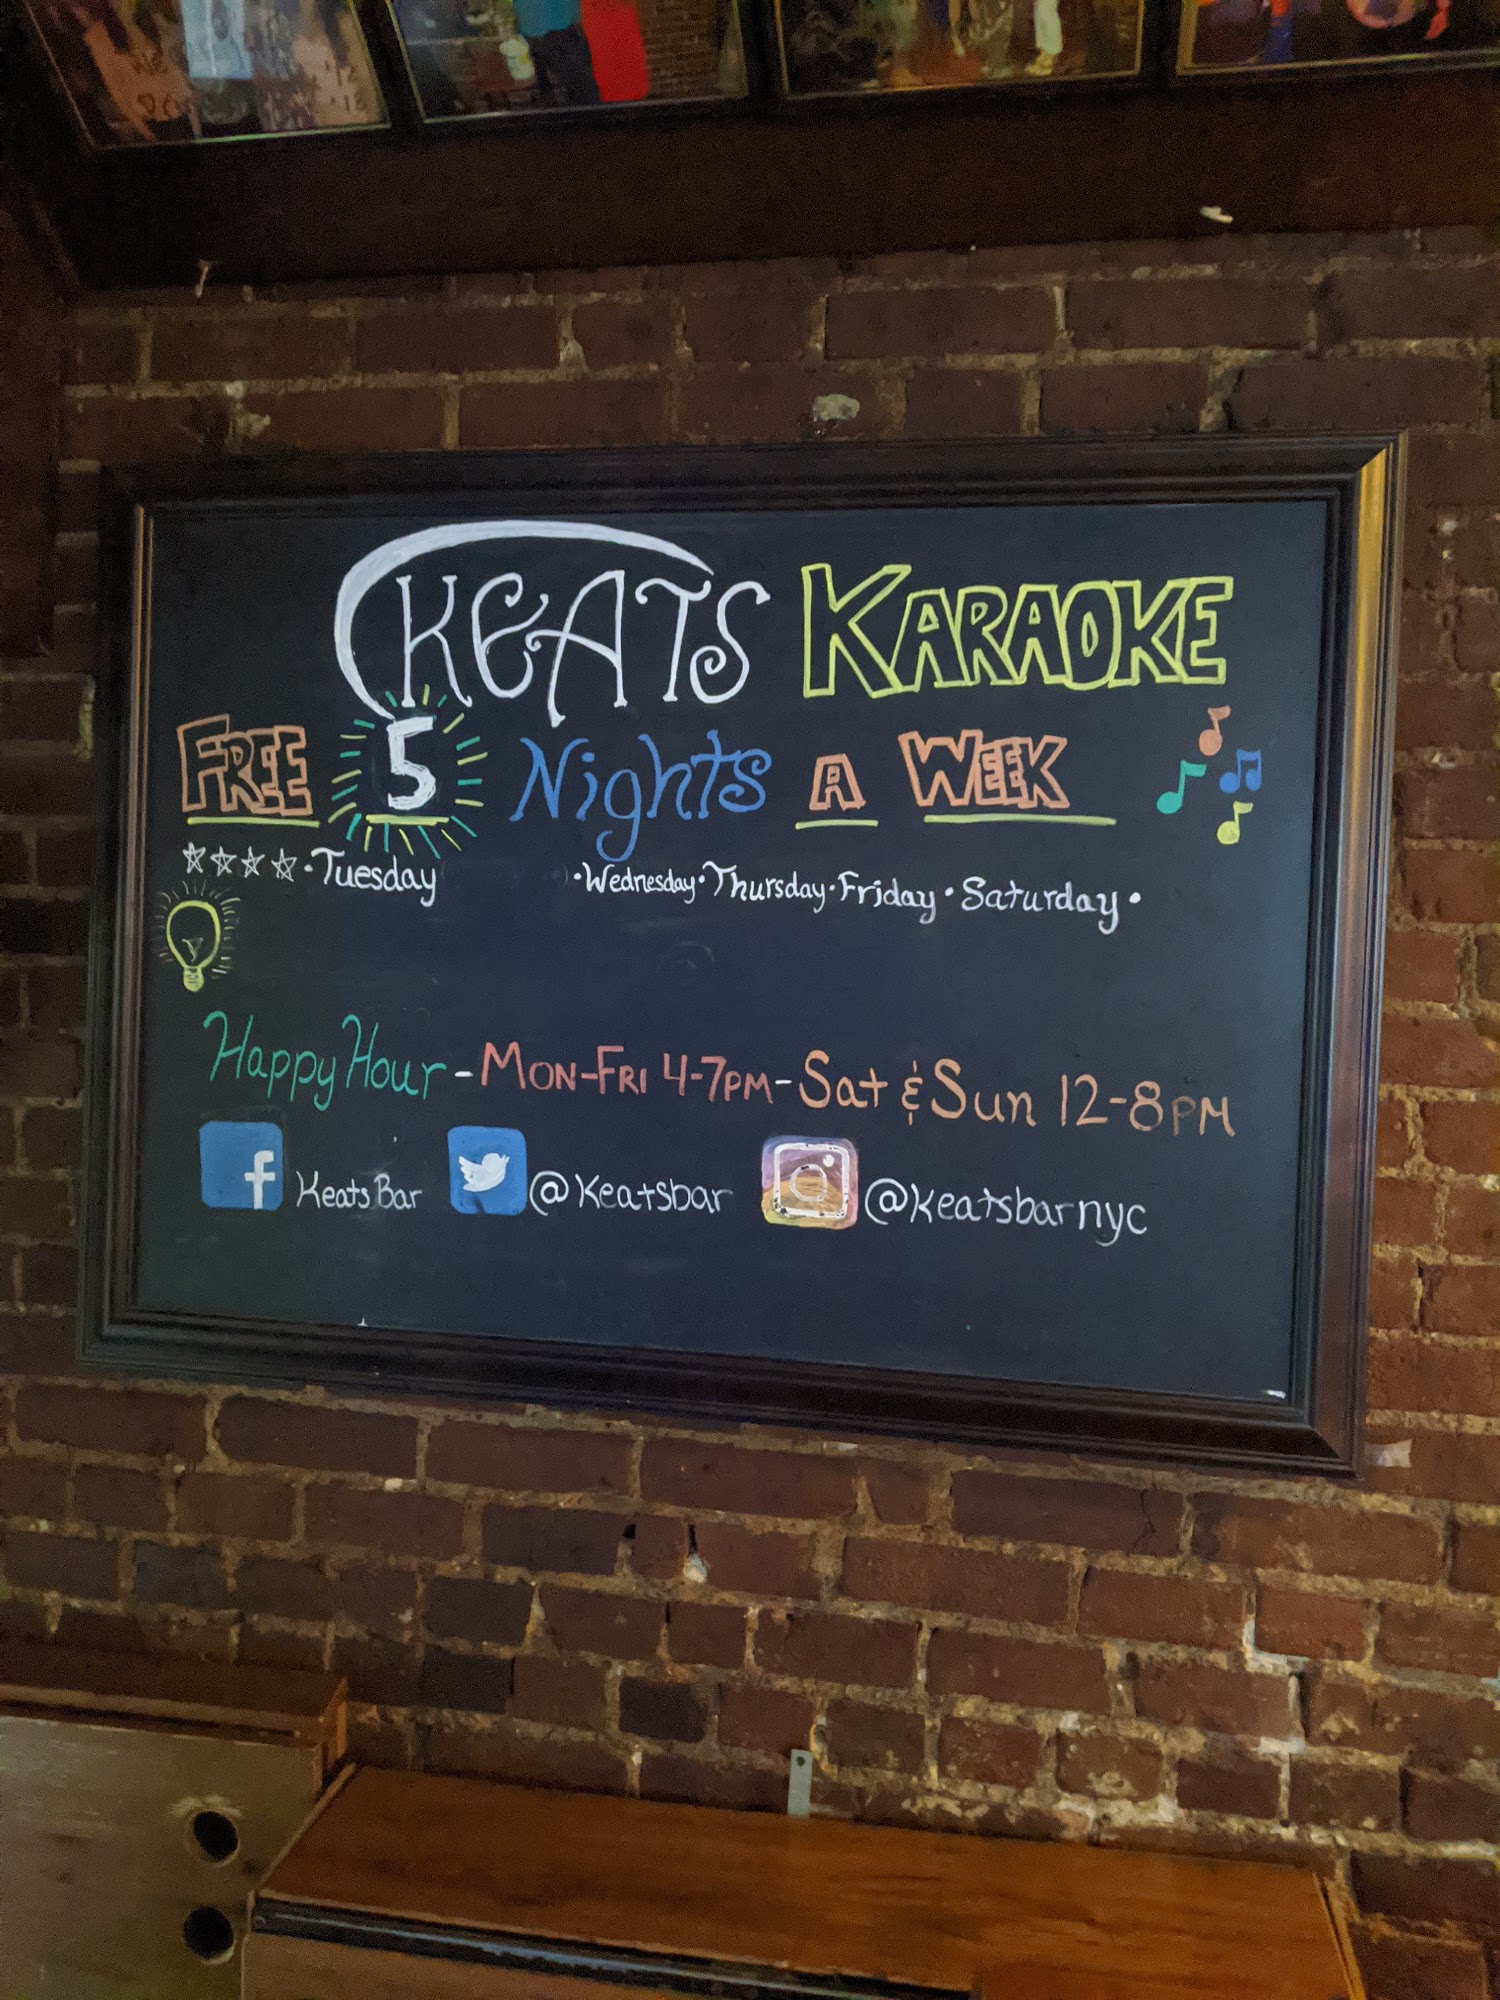 KEATS KARAOKE
FREE 5 Nights A WEEK
☆☆☆☆ · Tuesday · Wednesday · Thursday · Friday · Saturday ·
Happy Hour - MON-FRI 4-7PM - Sat & Sun 12-8PM
f Keats Bar @Keatsbar @Keatsbarnyc